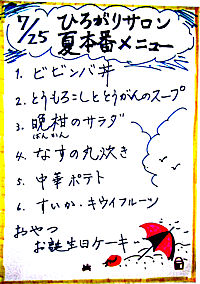 7/25 ひろがりサロン
夏本番メニュー
1. ビビンバ丼
2. とうもろこしととうがんのスープ
3. 晩柑のサラダ
ばんかん
4. なすの丸炊き
5. 中華ポテト
6. すいか・キウイフルーツ
おやつ
お誕生日ケーキ